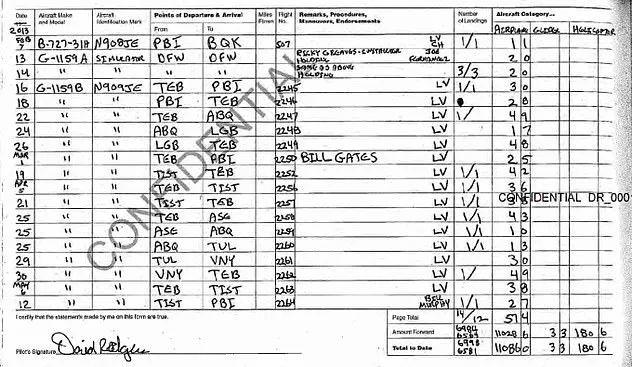 Date Aircraft Make and Model Aircraft Identification Mark Points of Departure & Arrival Miles Flown Flight No. Remarks, Procedures, Maneuvers, Endorsements Number of Landings Aircraft Category...
2013 From To AIRPLANE GLIDER HELICOPTER
FEB 7 B-727-31H N908JE PBI BQK 507 LV CH 1/1 1 1
13 G-1159A SIMULATOR DFW DFW HOLDING 2 0
14 " " " " SAME AS ABOVE HOLDING 3/3 2 0
16 G-1159B N909JE TEB PBI 2245 LV 1/1 3 0
18 " " PBI TEB 2246 LV 2 8
22 " " TEB ABQ 2247 LV 1/ 4 9
24 " " ABQ LGB 2248 LV 1 7
26 " " LGB TEB 2249 LV 4 8
MAR 1 " " TEB PBI 2250 BILL GATES LV 2 5
19 " " TIST TEB 2252 LV 1/1 4 2
APR 5 " " TEB TIST 2256 LV 1/1 3 6
21 " " TIST TEB 2257 LV 1/1
CONFIDENTIAL DR_000
25 " " TEB ASG 2258 LV 1/1 4 3
25 " " ASG ABQ 2259 LV 1/1 1 0
25 " " ABQ TUL 2260 LV 1/1 1 3
29 " " TUL VNY 2261 LV 3 0
30 " " VNY TEB 2262 LV 1/ 4 9
MAY 6 " " TEB TIST 2263 LV 3 8
12 " " TIST PBI 2264 BILL MURPHY 1/1 2 7
CONFIDENTIAL
I certify that the statements made by me on this form are true.
Page Total 14/12 57 4
Amount Forward 6984 6569 11028 6 3 3 180 6
Pilot's Signature David Rodgers
Total to Date 6998 6581 11086 0 3 3 180 6